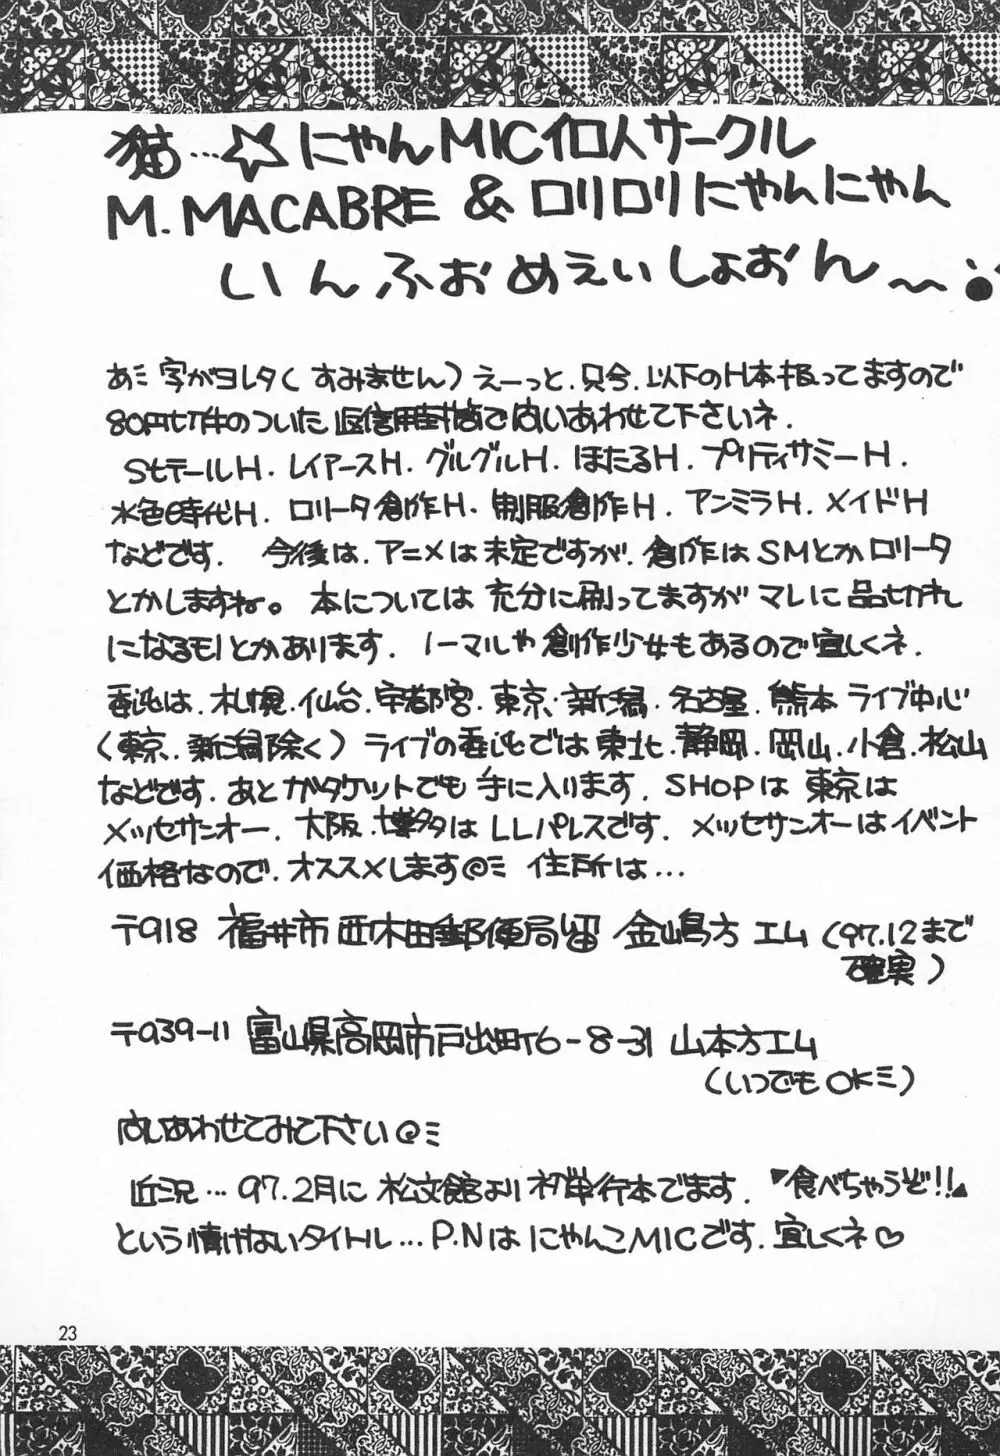 猫…☆にゃんMIC個人サークル
M.MACABRE & ロリロリにゃんにゃん
いんふぉめぇぃしょおん〜
あミ 字がヨレタ(すみません) えーっと、只今、以下のH本扱ってますので
80円切手のついた返信用封筒で問いあわせて下さいネ.
StテールH. レイアースH. グルグルH. ほたるH. プリティサミーH.
水色時代H. ロリータ創作H. 制服創作H. アンミラH. メイドH
などです. 今後は、アニメは未定ですが、創作はSMとかロリータ
とかしますね。本については充分に刷ってますがマレに品切れ
になるモノとかあります. ノーマルや創作少女もあるので宜しくネ.
委託は、札幌、仙台、宇都宮、東京、新潟、名古屋、熊本ライブ中心
(東京、新潟除く) ライブの委託では東北、静岡、岡山、小倉、松山
などです. あとガタケットでも手に入ります. SHOPは東京は
メッセサンオー、大阪、博多はLLパレスです. メッセサンオーはイベント
価格なので、オススメします@ミ 住所は…
〒918 福井市西木田郵便局留 金嶋方エム(97.12まで
確実)
〒939-11 富山県高岡市戸出町6-8-31 山本方エム
(いつでもOKミ)
問いあわせてみて下さい@ミ
近況…97.2月に松文館より初単行本でます. "食べちゃうぞ!!"
という情けないタイトル…P.NはにゃんこMICです. 宜しくネ♡
23